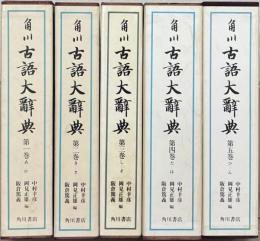 角川
古語大辭典
第一巻
中村幸彦
岡見正雄
阪倉篤義
編
角川書店
角川
古語大辭典
第二巻
中村幸彦
岡見正雄
阪倉篤義
編
角川書店
角川
古語大辭典
第三巻
中村幸彦
岡見正雄
阪倉篤義
編
角川書店
角川
古語大辭典
第四巻
中村幸彦
岡見正雄
阪倉篤義
編
角川書店
角川
古語大辭典
第五巻
中村幸彦
岡見正雄
阪倉篤義
編
角川書店